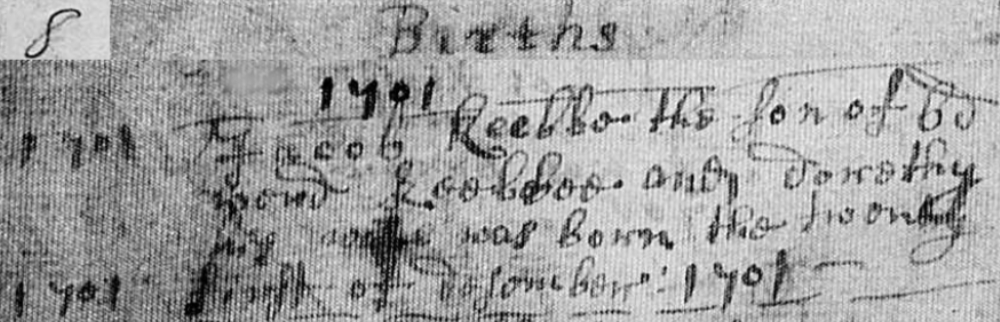 8
Births
1701
1701 Jacob Keebbe the son of Ed
mond Keebbee and dorothy
his wife was born the twenty
1701 first of desember: 1701